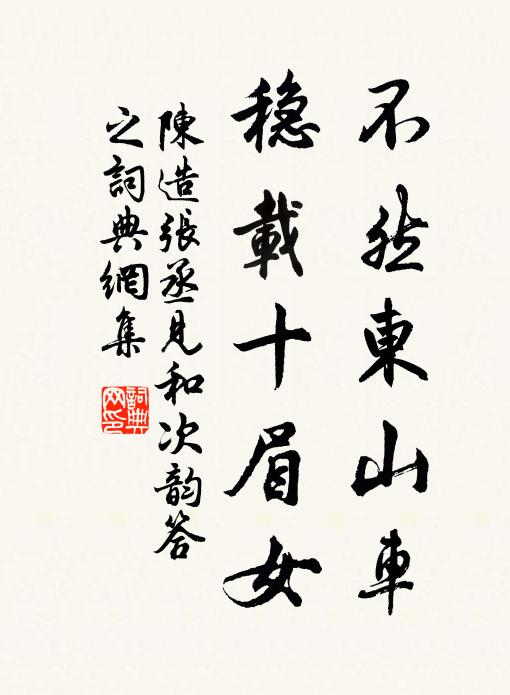 不然東山車
穩載十眉女
陳造張丞見和次韵答
之詞典網集
詞典網印